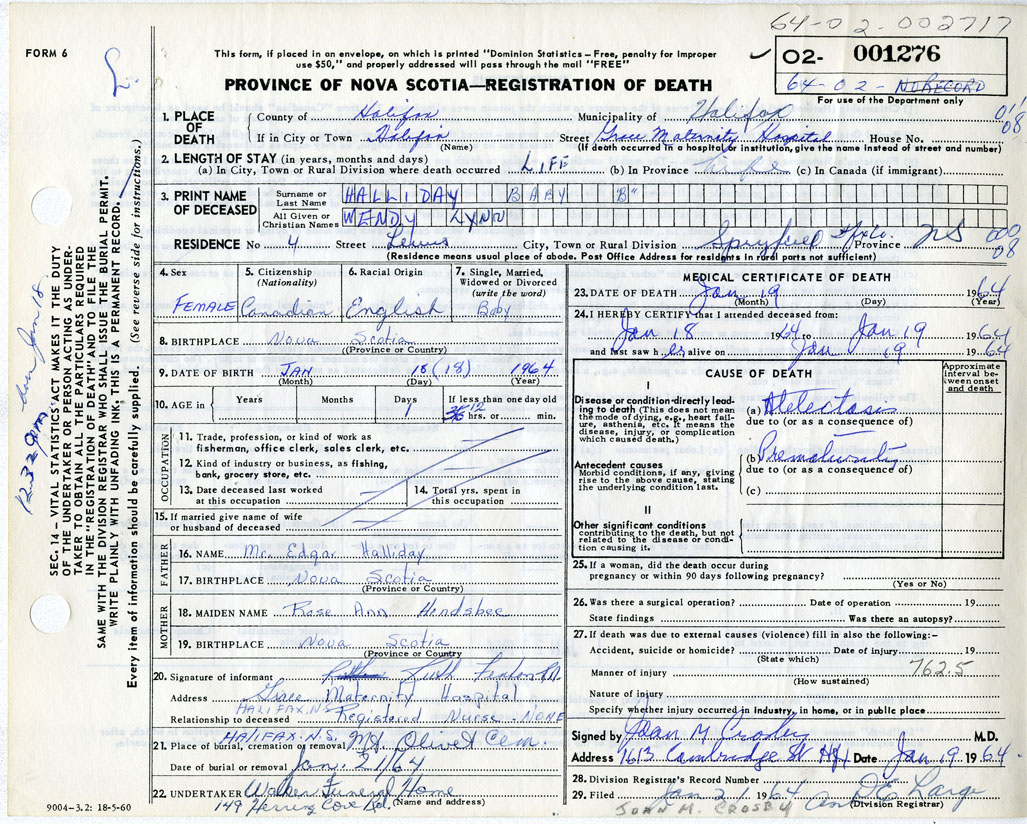 64-02-002717
FORM 6
L.
This form, if placed in an envelope, on which is printed "Dominion Statistics – Free, penalty for improper
use $50," and properly addressed will pass through the mail "FREE"
02- 001276
64-02- NO RECORD
For use of the Department only
PROVINCE OF NOVA SCOTIA—REGISTRATION OF DEATH
1. PLACE OF DEATH
County of Halifax Municipality of Halifax
If in City or Town Halifax Street Grace Maternity Hospital House No.
(Name) (If death occurred in a hospital or institution, give the name instead of street and number)
08
2. LENGTH OF STAY (in years, months and days)
(a) In City, Town or Rural Division where death occurred LIFE (b) In Province Life (c) In Canada (if immigrant)
3. PRINT NAME OF DECEASED
Surname or Last Name HALLIDAY BABY "B"
All Given or Christian Names WENDY LYNN
RESIDENCE No 4 Street Lewis City, Town or Rural Division Spryfield Hfx Co. Province NS
000
08
(Residence means usual place of abode. Post Office Address for residents in rural parts not sufficient)
4. Sex FEMALE
5. Citizenship (Nationality) Canadian
6. Racial Origin English
7. Single, Married, Widowed or Divorced (write the word) Baby
8. BIRTHPLACE Nova Scotia
(Province or Country)
9. DATE OF BIRTH JAN 18 (18) 1964
(Month) (Day) (Year)
10. AGE in Years Months Days 1 If less than one day old
36 12 hrs. or min.
OCCUPATION
11. Trade, profession, or kind of work as
fisherman, office clerk, sales clerk, etc.
12. Kind of industry or business, as fishing,
bank, grocery store, etc.
13. Date deceased last worked
at this occupation
14. Total yrs. spent in
this occupation
15. If married give name of wife
or husband of deceased
FATHER
16. NAME Mr. Edgar Halliday
17. BIRTHPLACE Nova Scotia
(Province or Country)
MOTHER
18. MAIDEN NAME Rose Ann Hindsbee
19. BIRTHPLACE Nova Scotia
(Province or Country)
20. Signature of informant Ruth
Address Grace Maternity Hospital
HALIFAX, N.S.
Relationship to deceased Registered Nurse - NONE
HALIFAX. N.S.
21. Place of burial, cremation or removal Mt. Olivet Cem.
Date of burial or removal Jan. 21/64
22. UNDERTAKER Walker Funeral Home
149 Herring Cove Rd. (Name and address)
9004-3.2: 18-5-60
MEDICAL CERTIFICATE OF DEATH
23. DATE OF DEATH Jan 19 1964
(Month) (Day) (Year)
24. I HEREBY CERTIFY that I attended deceased from:
Jan 18 1964 to Jan 19 1964
and last saw her alive on Jan 19 1964
CAUSE OF DEATH
Approximate interval between onset and death
I
Disease or condition directly leading to death (This does not mean the mode of dying, e.g., heart failure, asthenia, etc. It means the disease, injury, or complication which caused death.)
(a) Atelectasis
due to (or as a consequence of)
Antecedent causes
Morbid conditions, if any, giving rise to the above cause, stating the underlying condition last.
(b) Prematurity
due to (or as a consequence of)
(c)
II
Other significant conditions
contributing to the death, but not related to the disease or condition causing it.
25. If a woman, did the death occur during
pregnancy or within 90 days following pregnancy?
(Yes or No)
26. Was there a surgical operation? Date of operation 19
State findings Was there an autopsy?
27. If death was due to external causes (violence) fill in also the following:–
Accident, suicide or homicide? Date of injury 19
(State which)
Manner of injury 762.5
(How sustained)
Nature of injury
Specify whether injury occurred in industry, in home, or in public place
Signed by Joan M Crosby M.D.
Address 1613 Cambridge St Hfx Date Jan 19 1964
28. Division Registrar's Record Number
29. Filed Jan 21 1964 Large
JOAN M. CROSBY (Division Registrar)
SEC. 14 – VITAL STATISTICS ACT MAKES IT THE DUTY
OF THE UNDERTAKER OR PERSON ACTING AS UNDER-
TAKER TO OBTAIN ALL THE PARTICULARS REQUIRED
IN THE "REGISTRATION OF DEATH" AND TO FILE THE
SAME WITH THE DIVISION REGISTRAR WHO SHALL ISSUE THE BURIAL PERMIT.
WRITE PLAINLY WITH UNFADING INK. THIS IS A PERMANENT RECORD.
Every item of information should be carefully supplied. (See reverse side for instructions.)
Jan 18